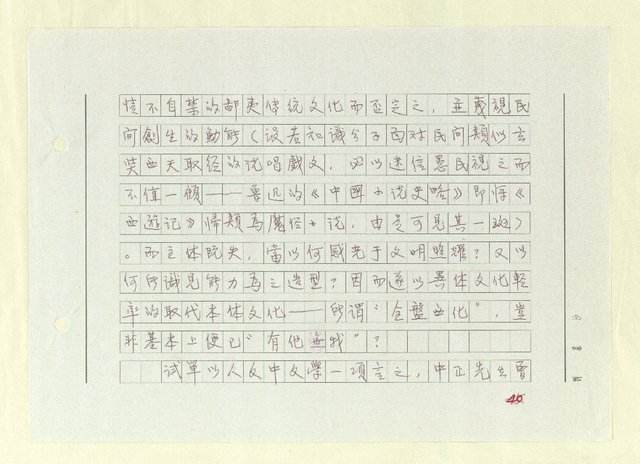 情不自禁的鄙夷傳統文化而否定之，並蔑視民
間創生的動能（設若知識分子面對民間類似玄
奘西天取经的说唱戲文，因以迷信愚民視之而
不值一顧——魯迅的《中國小说史略》即将《
西遊記》歸類為魔怪小说，由是可見其一斑）
。而主体既失，當以何感先于文明照耀？又以
何所識見能力為之造型？因而遂以異体文化輕
率的取代本体文化——所謂“全盤西化”，豈
非基本上便已“有他無我”？
試單以人文中文學一項言之，中正先生曾
40